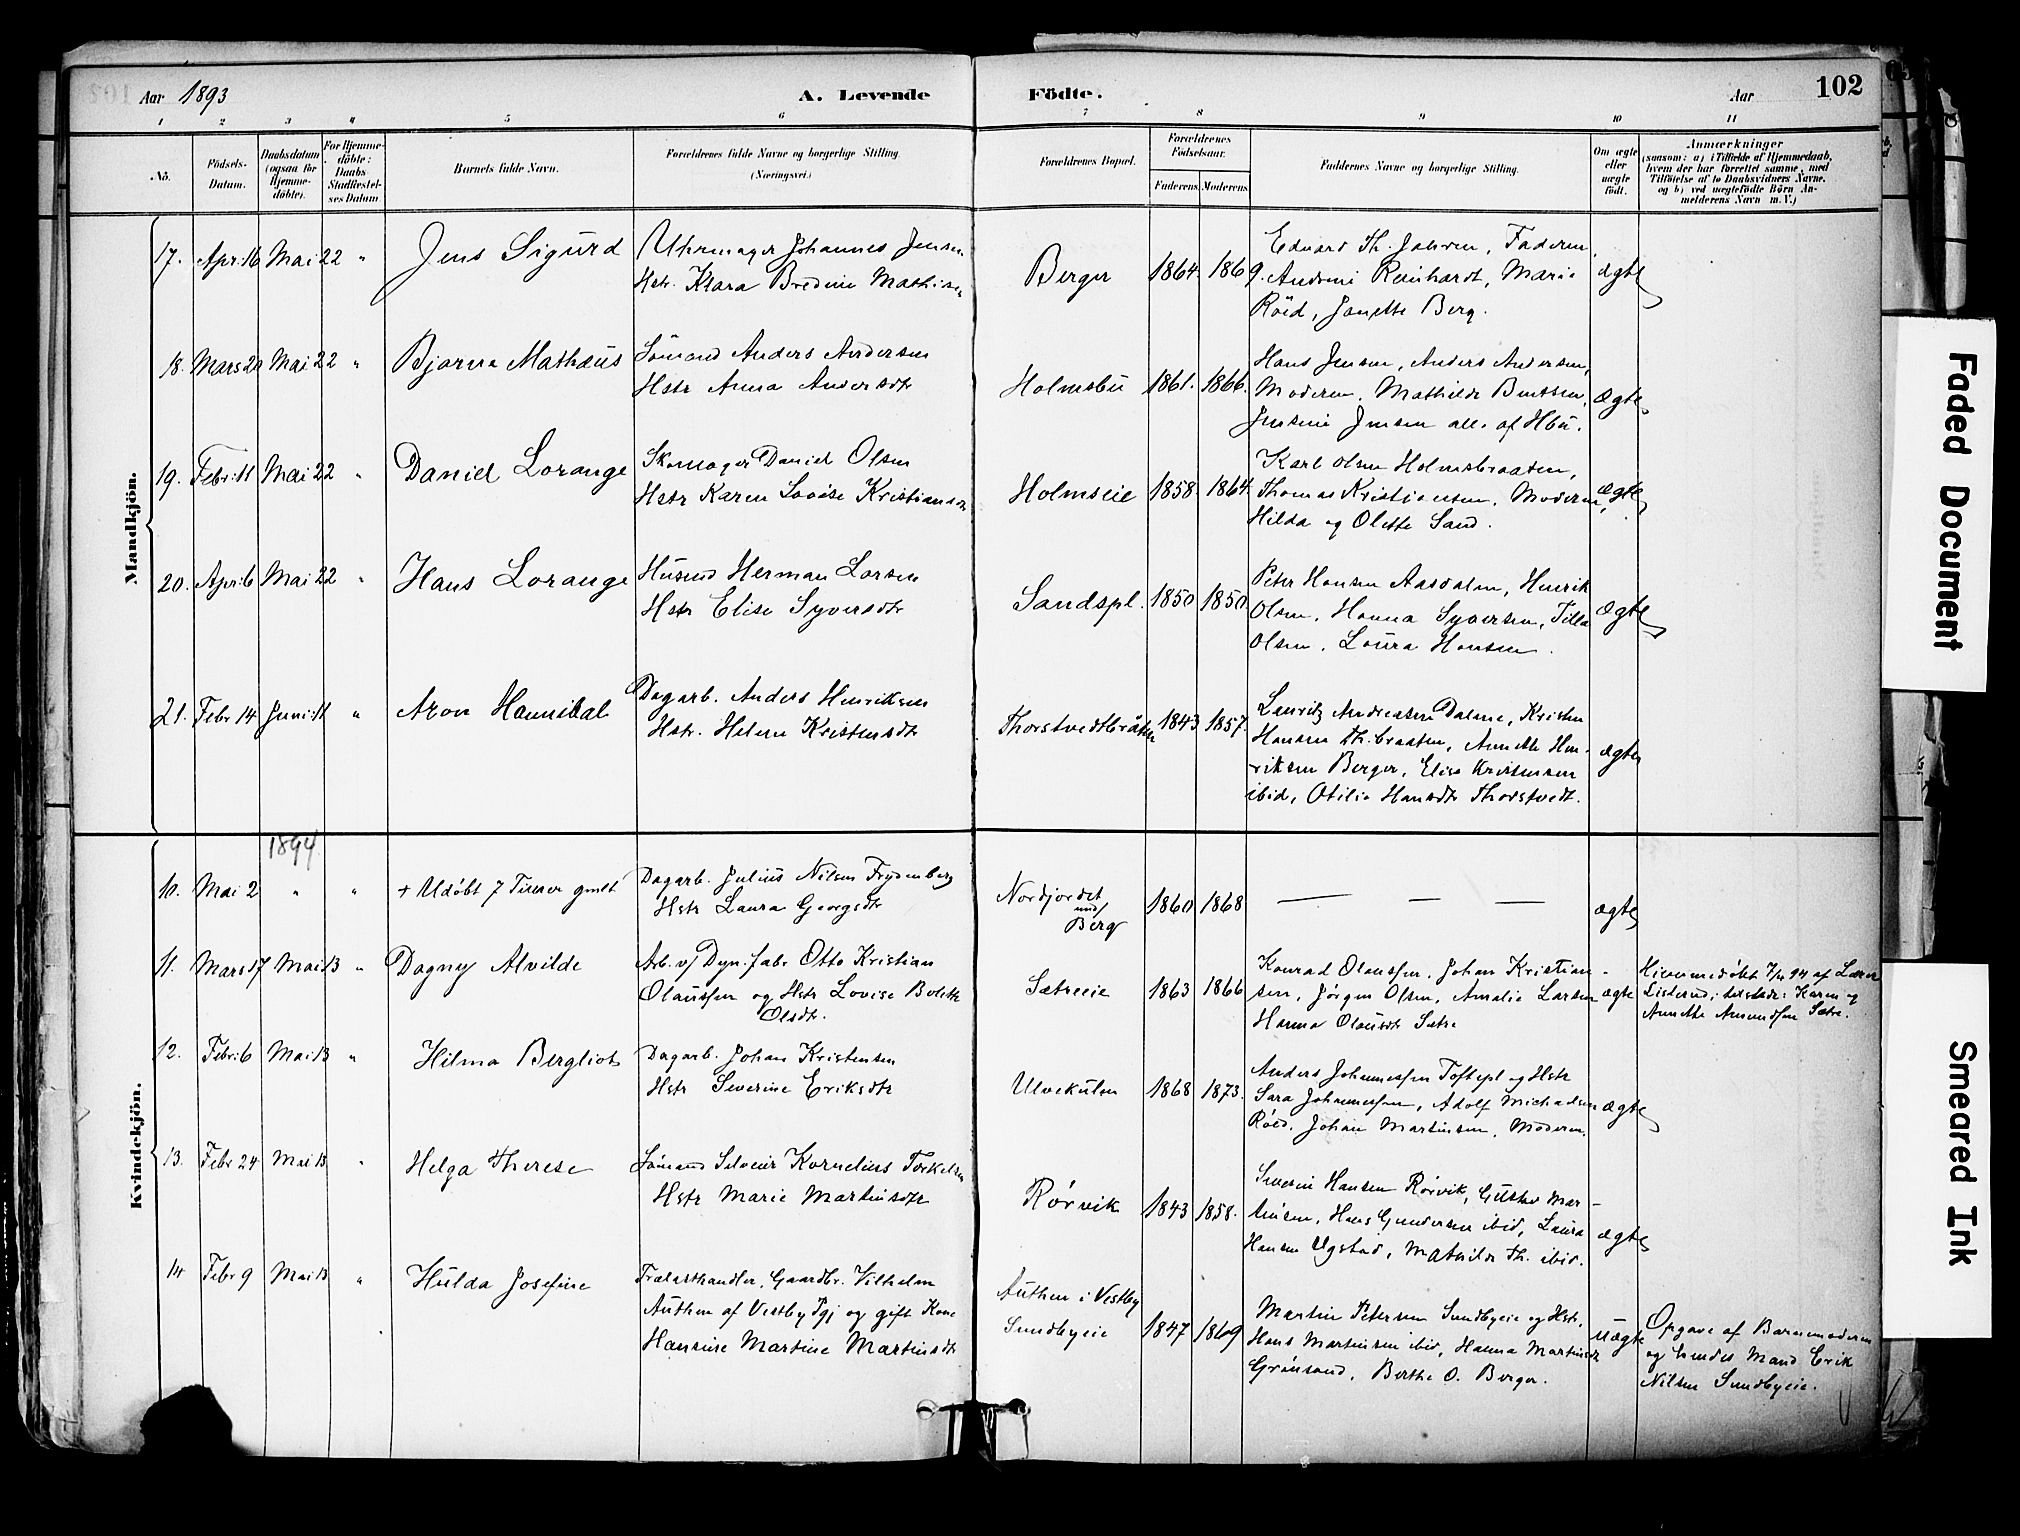 Aar 1893
A. Levende
Födte.
Aar
102
1 2 3 4 5 6 7 8 9 10 11
No.
Födsels-
Datum.
Daabsdatum
(ogsaa for
Hjemme-
döbte).
For Hjemme-
döbte:
Daabs
Stadfæstel-
ses Datum
Barnets fulde Navn.
Forældrenes fulde Navne og borgerlige Stilling
(Næringsvei.)
Forældrenes Bopæl.
Forældrenes
Födselsaar.
Faderens
Moderens
Faddernes Navne og borgerlige Stilling.
Om ægte
eller
uægte
født.
Anmærkninger
(saasom: a) i Tilfælde af Hjemmedaab,
hvem der har forrettet samme, med
Tilföielse af to Daabsvidners Navne,
og b) ved uægtefödte Börn An-
melderens Navn m. V.)
Mandkjön.
17. Apr: 16 Mai 22 " Jens Sigurd
Uhrmager Johannes Jensen
Hstr. Klara Bredine Mathisen
Berger 1864. 1869.
Edvard Th. Jahren, Faderen
Andreni Reinhardt, Marie
Röed, Janette Berg.
ægte
18. Mars 20 Mai 22 " Bjarne Mathæus
Sömand Anders Andersen
Hstr Anna Andersdtr
Holmsbu 1861. 1866.
Hans Jensen, Anders Andersen,
Moderen, Mathilde Berntsen,
Jensine Jensen alle af Hbu.
Ægte
19. Febr: 11 Mai 22 " Daniel Lorange
Skomager Daniel Olsen
Hstr Karen Lovise Kristiansdtr
Holmseie 1858. 1864.
Karl Olsen Holmsbraaten,
Thomas Kristiansen, Moderen,
Hilda og Olette Sand.
Ægte
20. Apr: 6 Mai 22 " Hans Lorange
Husmd Herman Larsen
Hstr Elise Syversdtr
Sandspl. 1850 1850
Peter Hansen Aasdalen, Henrik
Olsen, Hanna Syversen, Tilla
Olsen, Laura Hansen.
Ægte
21. Febr 14 Juni: 11 " Aron Hannibal
Dagarb. Anders Henriksen
Hstr. Helene Kristensdtr
Thorstvedtbråten 1843 1857.
Lauritz Andreasen Dalene, Kristen
Hansen Th. braaten, Annette Hen-
riksen Berger, Elise Kristensen
ibid, Otilie Hansdtr Thorstvedt.
Ægte
Kvindekjön.
1894
10. Mai 2 " " + Udöbt 7 Timer gmlt
Dagarb. Julius Nilsen Frydenberg
Hstr Laura Georgsdtr
Nordjordet
und/
Berg
1860 1868
— — —
ægte
11. Mars 17 Mai 13 " Dagny Alvilde
Arb. v/ Dyn. fabr Otto Kristian
Olaussen og Hstr Lovise Bolette
Olsdtr.
Sætreeie 1863 1866
Konrad Olaussen, Johan Kristian-
sen, Jörgen Olsen, Amalie Larsen
Hanna Olausdt Sætre
ægte
Hjemmedöbt 7/4 94 af Lærer
Listerud; tilstede: Karen og
Annette Amundsen Sætre.
12. Febr: 6 Mai 13 " Hilma Bergliot
Dagarb. Johan Kristensen
Hstr Severine Eriksdtr
Ulvekulen 1868 1873.
Anders Johannessen Toftepl og Hstr
Sara Johannessen, Adolf Michaelsen
Röed, Johan Martinsen, Moderen.
Ægte
13. Febr 24 Mai 13 " Helga Therese
Sömand Kornelius Torkelsen
Hstr Marie Martinsdtr
Rörvik 1843 1858.
Severin Hansen Rörvik, Gustav Mar-
tinsen, Hans Gundersen ibid, Laura
Hansen Ugstad, Mathilde Th. ibid.
ægte
14 Febr 9 Mai 13 " Hulda Josefine
Trælasthandler, Gaardbr. Vilhelm
Authen af Vestby Pgj og gift Kone
Hansine Martine Martinsdtr
Authen i Vestby
Sundbyeie
1847 1869
Martin Petersen Sundbyeie og Hstr,
Hans Martinsen ibid, Hanna Martinsdtr
Grönsand, Berthe O. Berger.
uægte
Opgave af Barnemoderen
og hendes Mand Erik
Nilsen Sundbyeie.
Faded Document
Smeared Ink